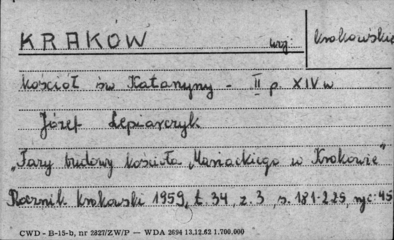 KRAKÓW woj. krakowskie
kościół św Katarzyny - II p. XIV w
Józef Lepiarczyk
"Fazy budowy kościoła Mariackiego w Krakowie"
Rocznik krakowski 1959, t. 34, z. 3, s. 181-225, ryc. 45
CWD - B-15-b, nr 2827/ZW/P — WDA 2694 13.12.62 1.700.000